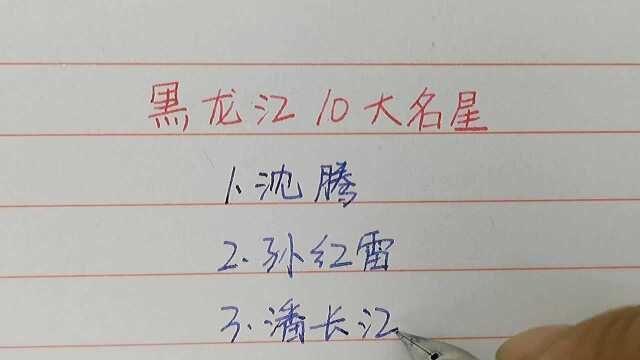 黑龙江10大名星
1、沈腾
2.孙红雷
3.潘长江